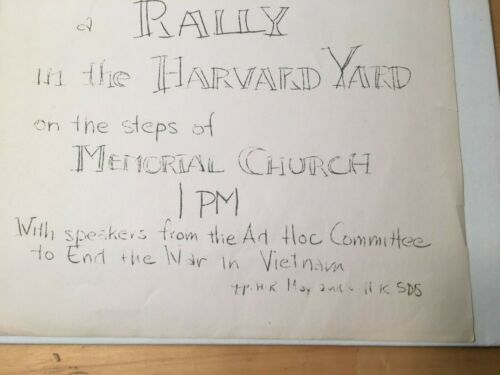 a RALLY
in the HARVARD YARD
on the steps of
MEMORIAL CHURCH
1 PM
With speakers from the Ad Hoc Committee
to End the War in Vietnam
May 2nd SDS